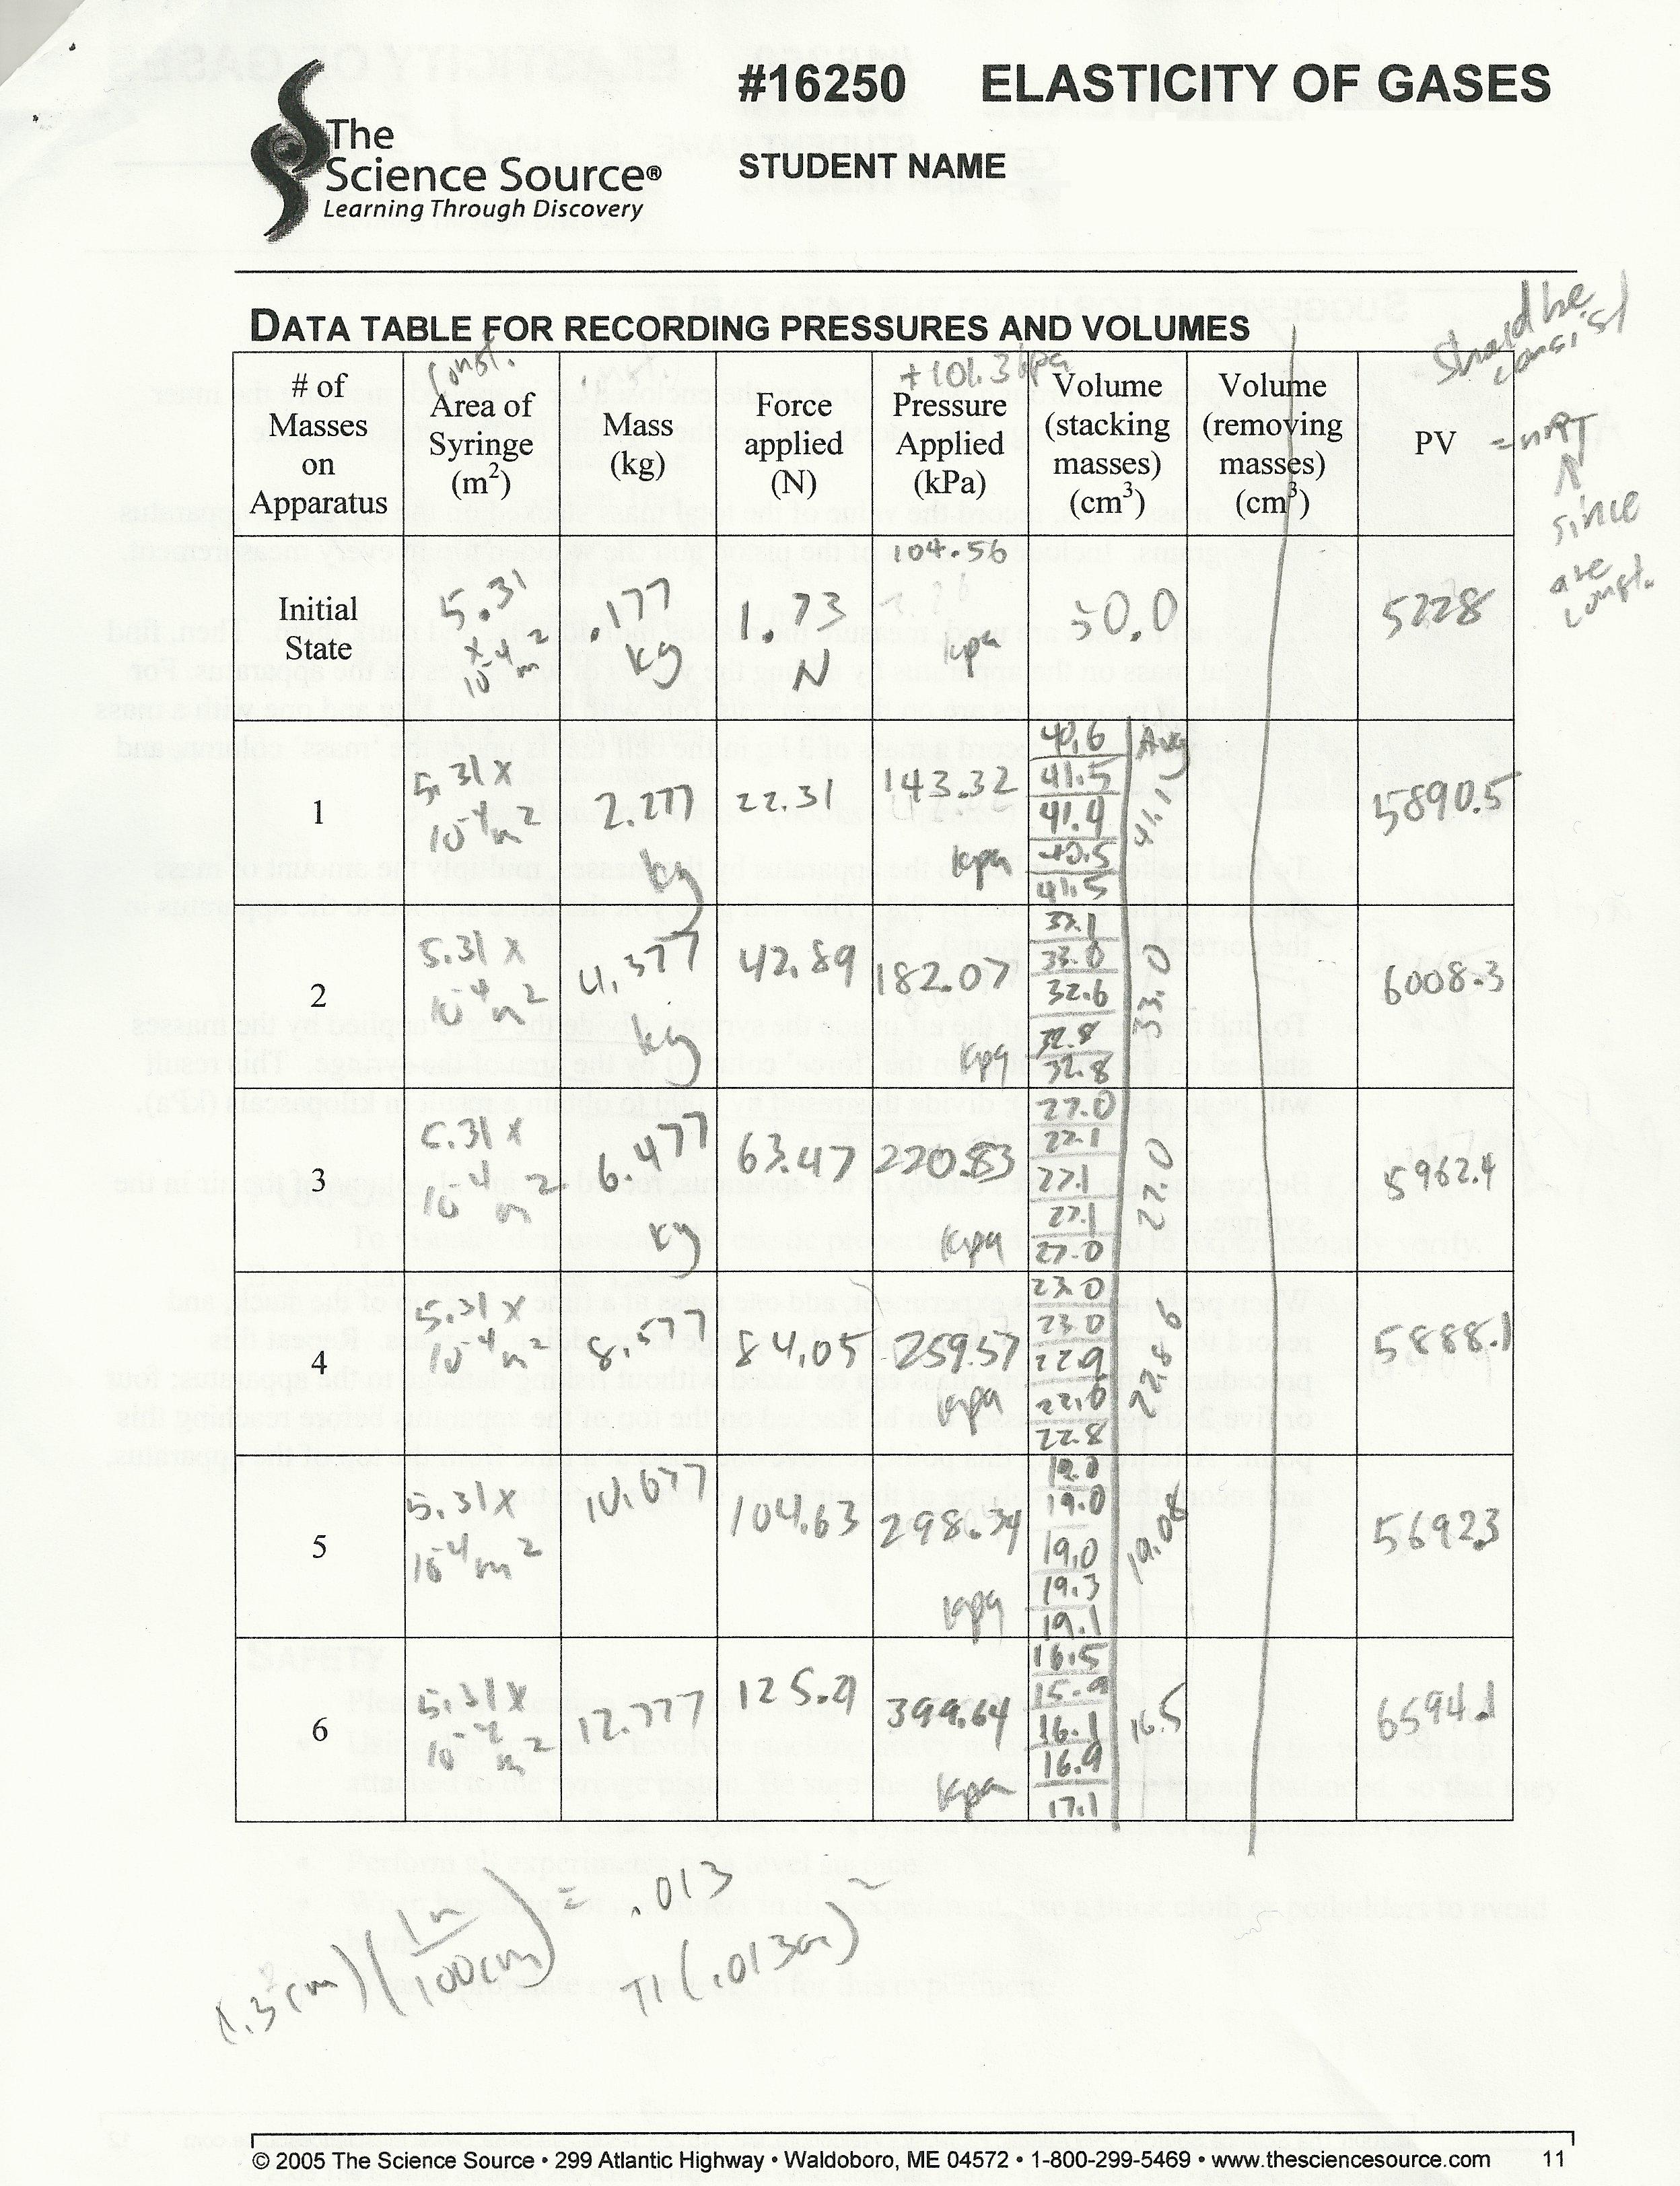 #16250 ELASTICITY OF GASES
The
Science Source®
Learning Through Discovery
STUDENT NAME
DATA TABLE FOR RECORDING PRESSURES AND VOLUMES
Should be
consist
const.
+101.3 kpa
# of
Masses
on
Apparatus
Area of
Syringe
(m²)
Mass
(kg)
Force
applied
(N)
Pressure
Applied
(kPa)
Volume
(stacking
masses)
(cm³)
Volume
(removing
masses)
(cm³)
PV
= nRT
N
since
are
const.
Initial
State
5.31
x
10⁻⁴m²
.177
kg
1.73
N
104.56
kpa
50.0
5228
1
5.31 x
10⁻⁴m²
2.277
kg
22.31
143.32
kpa
40.6
41.5
41.4
40.5
41.5
Avg
41.1
5890.5
2
5.31 x
10⁻⁴m²
4.377
kg
42.89
182.07
kpa
33.0
32.6
32.8
32.8
33.0
6008.3
3
5.31 x
10⁻⁴m²
6.477
kg
63.47
220.83
kpa
27.0
27.1
27.1
27.1
27.0
27.0
5962.4
4
5.31 x
10⁻⁴m²
8.577
84.05
259.57
kpa
23.0
23.0
22.9
22.8
22.86
5888.1
5
5.31 x
10⁻⁴m²
10.677
104.63
298.34
kpa
19.0
19.0
19.0
19.3
19.1
19.08
5692.3
6
5.31 x
10⁻⁴m²
12.777
125.21
399.64
kpa
16.5
15.9
16.1
16.9
17.1
16.5
6594.1
1.3cm)(1m/100cm) = .013
π(.013m)²
© 2005 The Science Source • 299 Atlantic Highway • Waldoboro, ME 04572 • 1-800-299-5469 • www.thesciencesource.com 11